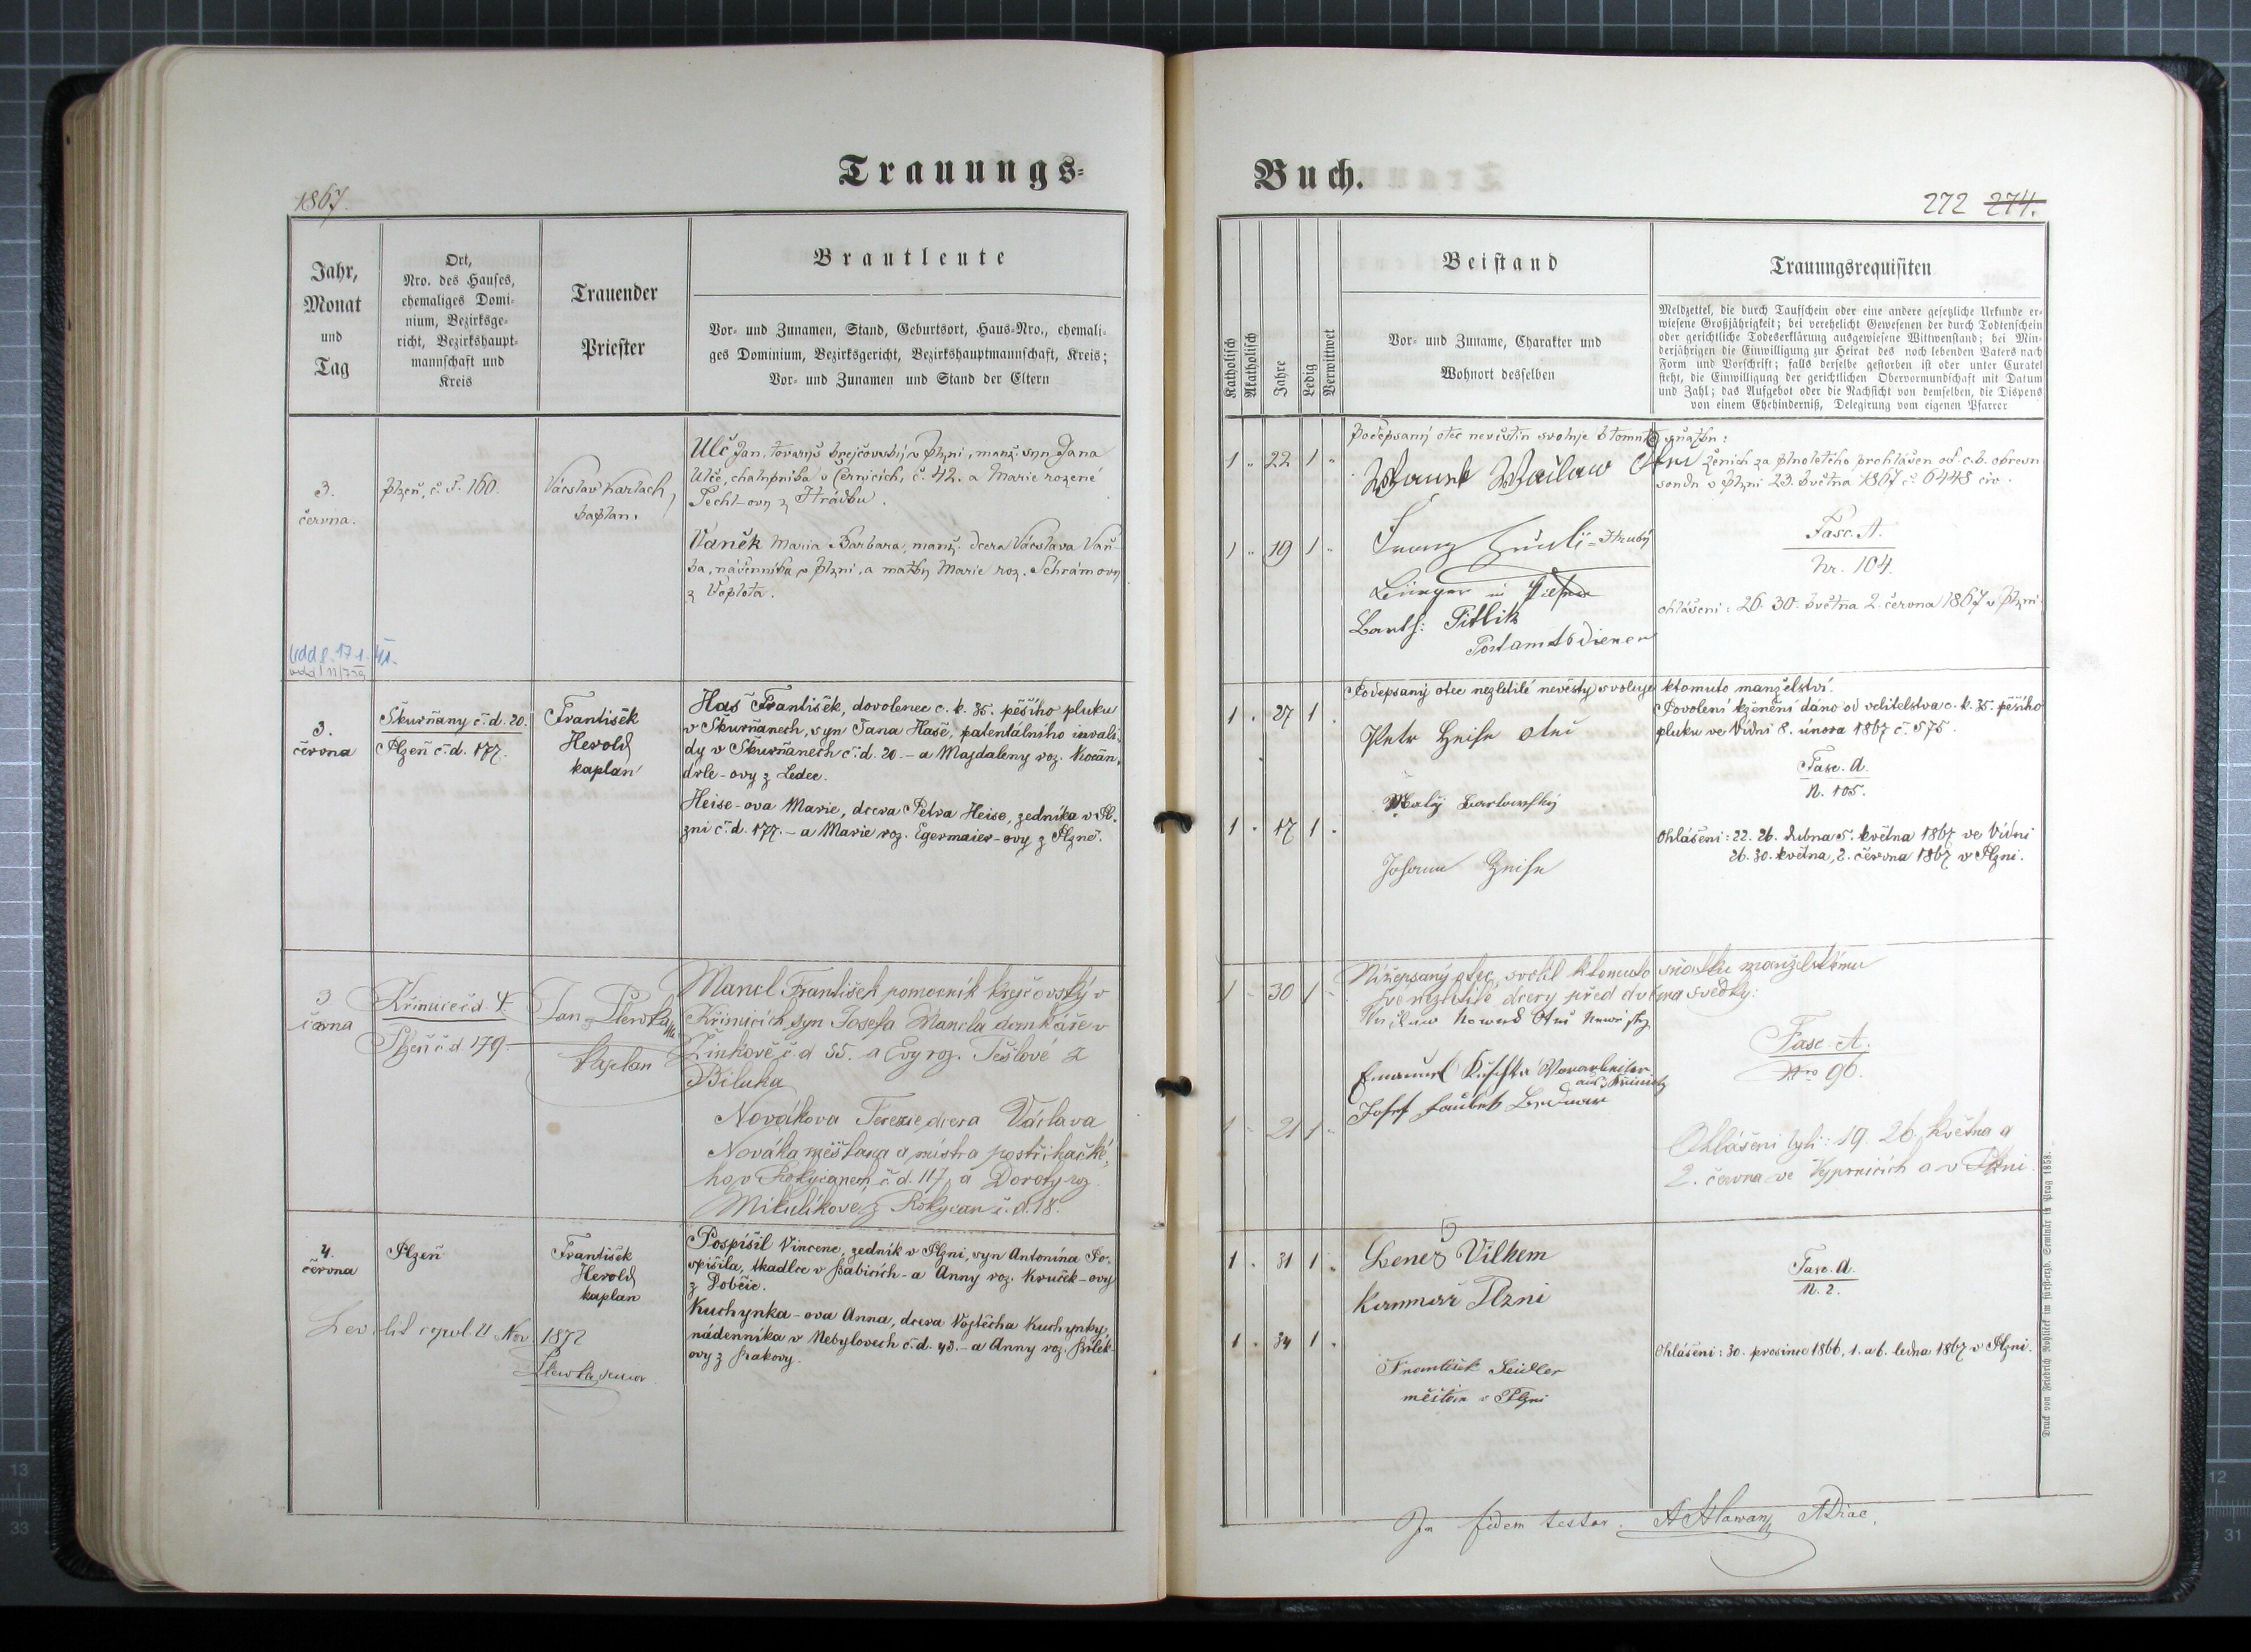 Trauungs=
1867.
Jahr,
Monat
und
Tag
Ort,
Nro. des Hauses,
ehemaliges Domi-
nium, Bezirksge-
richt, Bezirkshaupt-
mannschaft und
Kreis
Trauender
Priester
Brautleute
Vor- und Zunamen, Stand, Geburtsort, Haus-Nro., ehemali-
ges Dominium, Bezirksgericht, Bezirkshauptmannschaft, Kreis;
Vor- und Zunamen und Stand der Eltern
3.
června.
Plzeň, č. d. 160.
Václav Karlach,
kaplan.
Ulč Jan, tovaryš krejčovský v Plzni, manž. syn Jana
Ulče, chalupníka v Černicích, č. 42. a Marie rozené
Pecht-ovy z Hrádku.
Vaněk Maria Barbara, manž. dcera Václava Vaň-
ka, nádenníka v Plzni, a matky Marie roz. Schrámovy
z Úoplota.
3.
června
Škurňany č. d. 20.
Plzeň č. d. 177.
František
Herold
kaplan
Has František, dovolenec c. k. 35. pěšího pluku
v Škurňanech, syn Jana Hase, patentálního invali-
dy v Škurňanech č. d. 20. – a Majdaleny roz. Kocan-
drle-ovy z Ledec.
Heise-ova Marie, dcera Petra Heise, zedníka v Pl-
zni č. d. 177. – a Marie roz. Egermaier-ovy z Plzně.
3
června
Křimice č. d. 4.
Plzeň č. d. 179.
Jan Plewka
kaplan
Mancl František pomocník krejčovský v
Křimicích syn Josefa Mancla domkáře v
Žinkově č. d 55. a Evy roz. Tešlové z
Biluka
Novákova Terezie dcera Václava
Nováka měšťana a mistra postřihačské-
ho v Rokycanech č. d. 117 a Doroty roz.
Mikulíkové z Rokycan č. d. 18.
4.
června
Plzeň
František
Herold
kaplan
Pospíšil Vincenc, zedník v Plzni, syn Antonína Po-
spíšila, tkadlce v Babicích – a Anny roz. Kruček-ovy
z Dobčic.
Kuchynka-ova Anna, dcera Vojtěcha Kuchynky,
nádenníka v Nebylovech č. d. 43. – a Anny roz.
ovy z Prakovy.
Nov. 1872
Plewka
Buch.
272 274.
Katholisch
Akatholisch
Jahre
Ledig
Verwittwet
Beistand
Vor- und Zuname, Charakter und
Wohnort desselben
Trauungsrequisiten
Meldzettel, die durch Taufschein oder eine andere gesetzliche Urkunde er-
wiesene Großjährigkeit; bei verehelicht Gewesenen der durch Todtenschein
oder gerichtliche Todeserklärung ausgewiesene Wittwenstand; bei Min-
derjährigen die Einwilligung zur Heirat des noch lebenden Vaters nach
Form und Vorschrift; falls derselbe gestorben ist oder unter Curatel
steht, die Einwilligung der gerichtlichen Obervormundschaft mit Datum
und Zahl; das Aufgebot oder die Nachsicht von demselben, die Dispens
von einem Ehehinderniß, Delegirung vom eigenen Pfarrer
Podepsaný otec nevěstin svoluje k tomuto sňatku:
1 " 22 1 "
Wanek Waclaw Otec
Ženich za plnoletého prohlášen od c. k. okresn.
soudu v Plzni 23. května 1867 č. 6448 civ.
1 " 19 1 "
Franz
Hrubý
in Pilsen
Barth: Pitlik
Postamtsdiener
Fasc. A.
Nr. 104.
ohlášeni: 26. 30. května 2. června 1867 v Plzni.
Podepsaný otec nezletilé nevěsty svoluje k tomuto manželství.
1 . 27 1 .
Petr Heise otec
Povolení k ženění dáno od velitelstva c. k. 35. pěšího
pluku ve Vídni 8. února 1867 č. 575.
Fasc. A.
N. 105.
1 . 17 1 .
Johann Heise
Ohlášeni: 22. 26. dubna 5. května 1867 ve Vídni
26. 30. května, 2. června 1867 v Plzni.
Nížepsaný otec, svolil k tomuto sňatku manželskému
své nezletilé dcery před dvěma svědky:
1 - 30 1 -
Waclaw Nowak Otec
Emanuel Vorarbeiter
aus Křimitz
Josef
1 - 21 1 -
Fasc. A.
Nro 96.
Ohlášeni byli: 19. 26. května a
2. června ve Vejprnicích a v Plzni.
1 . 31 1 .
Benes Vilhem
Plzni
Fasc. A.
N. 2.
1 . 34 1 .
Frantisek Seidler
měštan v Plzni
Ohlášeni: 30. prosince 1866, 1. a 6. ledna 1867 v Plzni.
In fidem testor. A Hlawan
Druck von Friedrich Rohliček im fürsterzb. Seminär in Prag 1858.